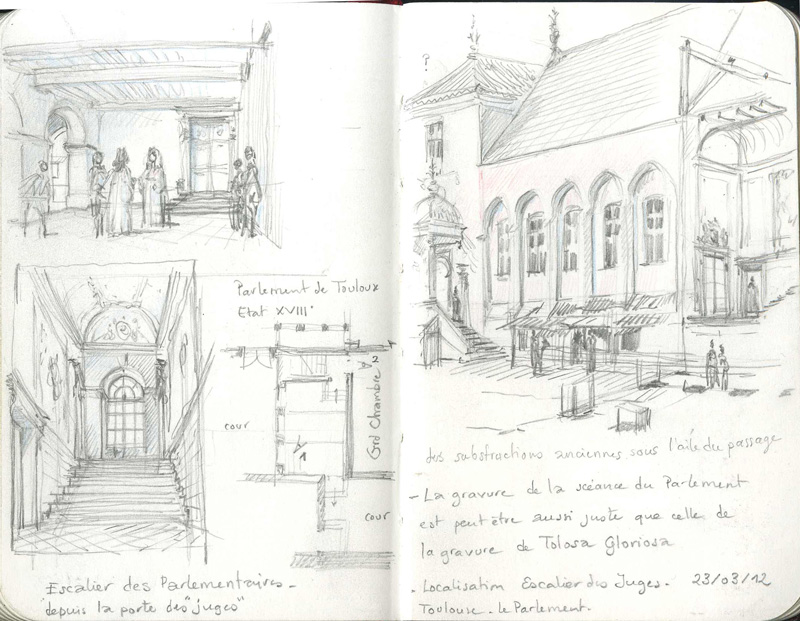 Parlement de Toulouse
Etat XVIII°
2
Grd Chambre
cour
1
cour
Escalier des Parlementaires -
"depuis la porte des "juges"
?
des substructions anciennes sous l'aile du passage
- La gravure de la scéance du Parlement
est peut être aussi juste que celle de
la gravure de Tolosa Gloriosa
- Localisation Escalier des Juges. 23/03/12
Toulouse - le Parlement.